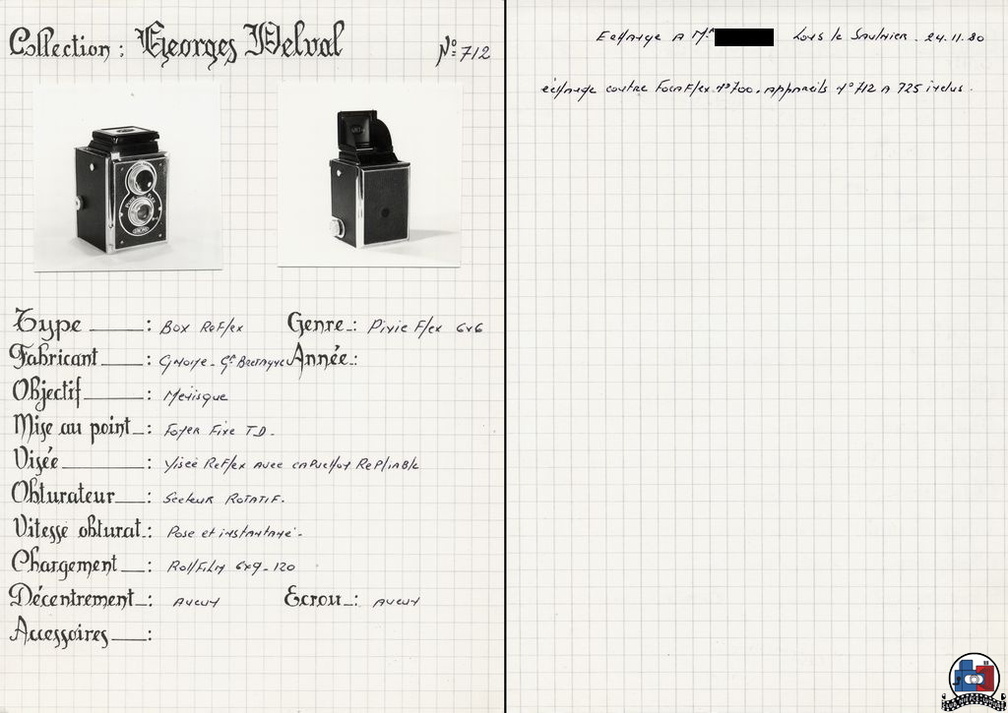 Collection : Georges Delval N° 712
Type : Box Reflex Genre : Pixie Flex 6x6
Fabricant : Gnome - Gde Bretagne Année :
Objectif : Ménisque
Mise au point : Foyer Fixe T.D.
Visée : Visée Reflex avec capuchon Repliable
Obturateur : Secteur Rotatif.
Vitesse obturat. : Pose et instantané.
Chargement : Rollfilm 6x9 - 120
Décentrement : aucun Ecrou : aucun
Accessoires :
Echange A Mr Lons le Saulnier. 24.11.80
échange contre FocaFlex n° 700. appareils n° 712 A 725 inclus.